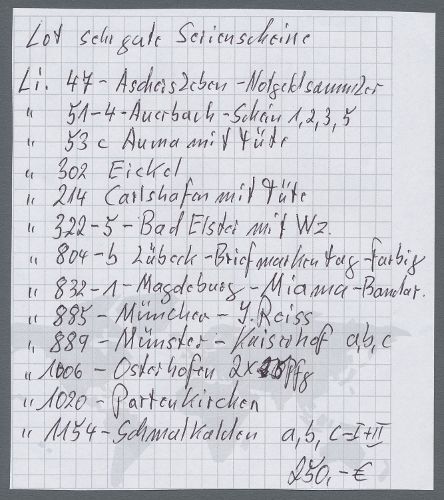 Lot sehr gute Serienscheine
Li. 47 - Aschersleben - Notgeldsammler
" 51-4 - Auerbach - Schein 1,2,3,5
" 53 c Auma mit Tüte
" 302 Eickel
" 214 Carlshafen mit Tüte
" 322-5 - Bad Elster mit Wz.
" 804-b Lübeck - Briefmarkentag - farbig
" 832-1 - Magdeburg - Miama - Bandar.
" 885 - München - J. Reiss
" 889 - Münster - Kaiserhof a,b,c
" 1006 - Osterhofen 2x Pfg
" 1020 - Partenkirchen
" 1154 - Schmalkalden a,b, c=I+II
250,-€